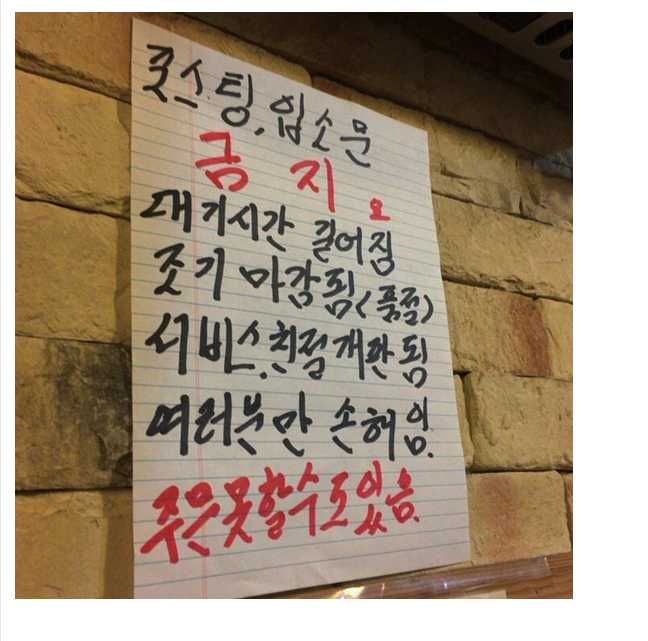 포스팅, 입소문
금지요
대기시간 길어짐
조기 마감됨(품절)
서비스.친절개판됨
여러분만 손해임.
주문못할수도있음.